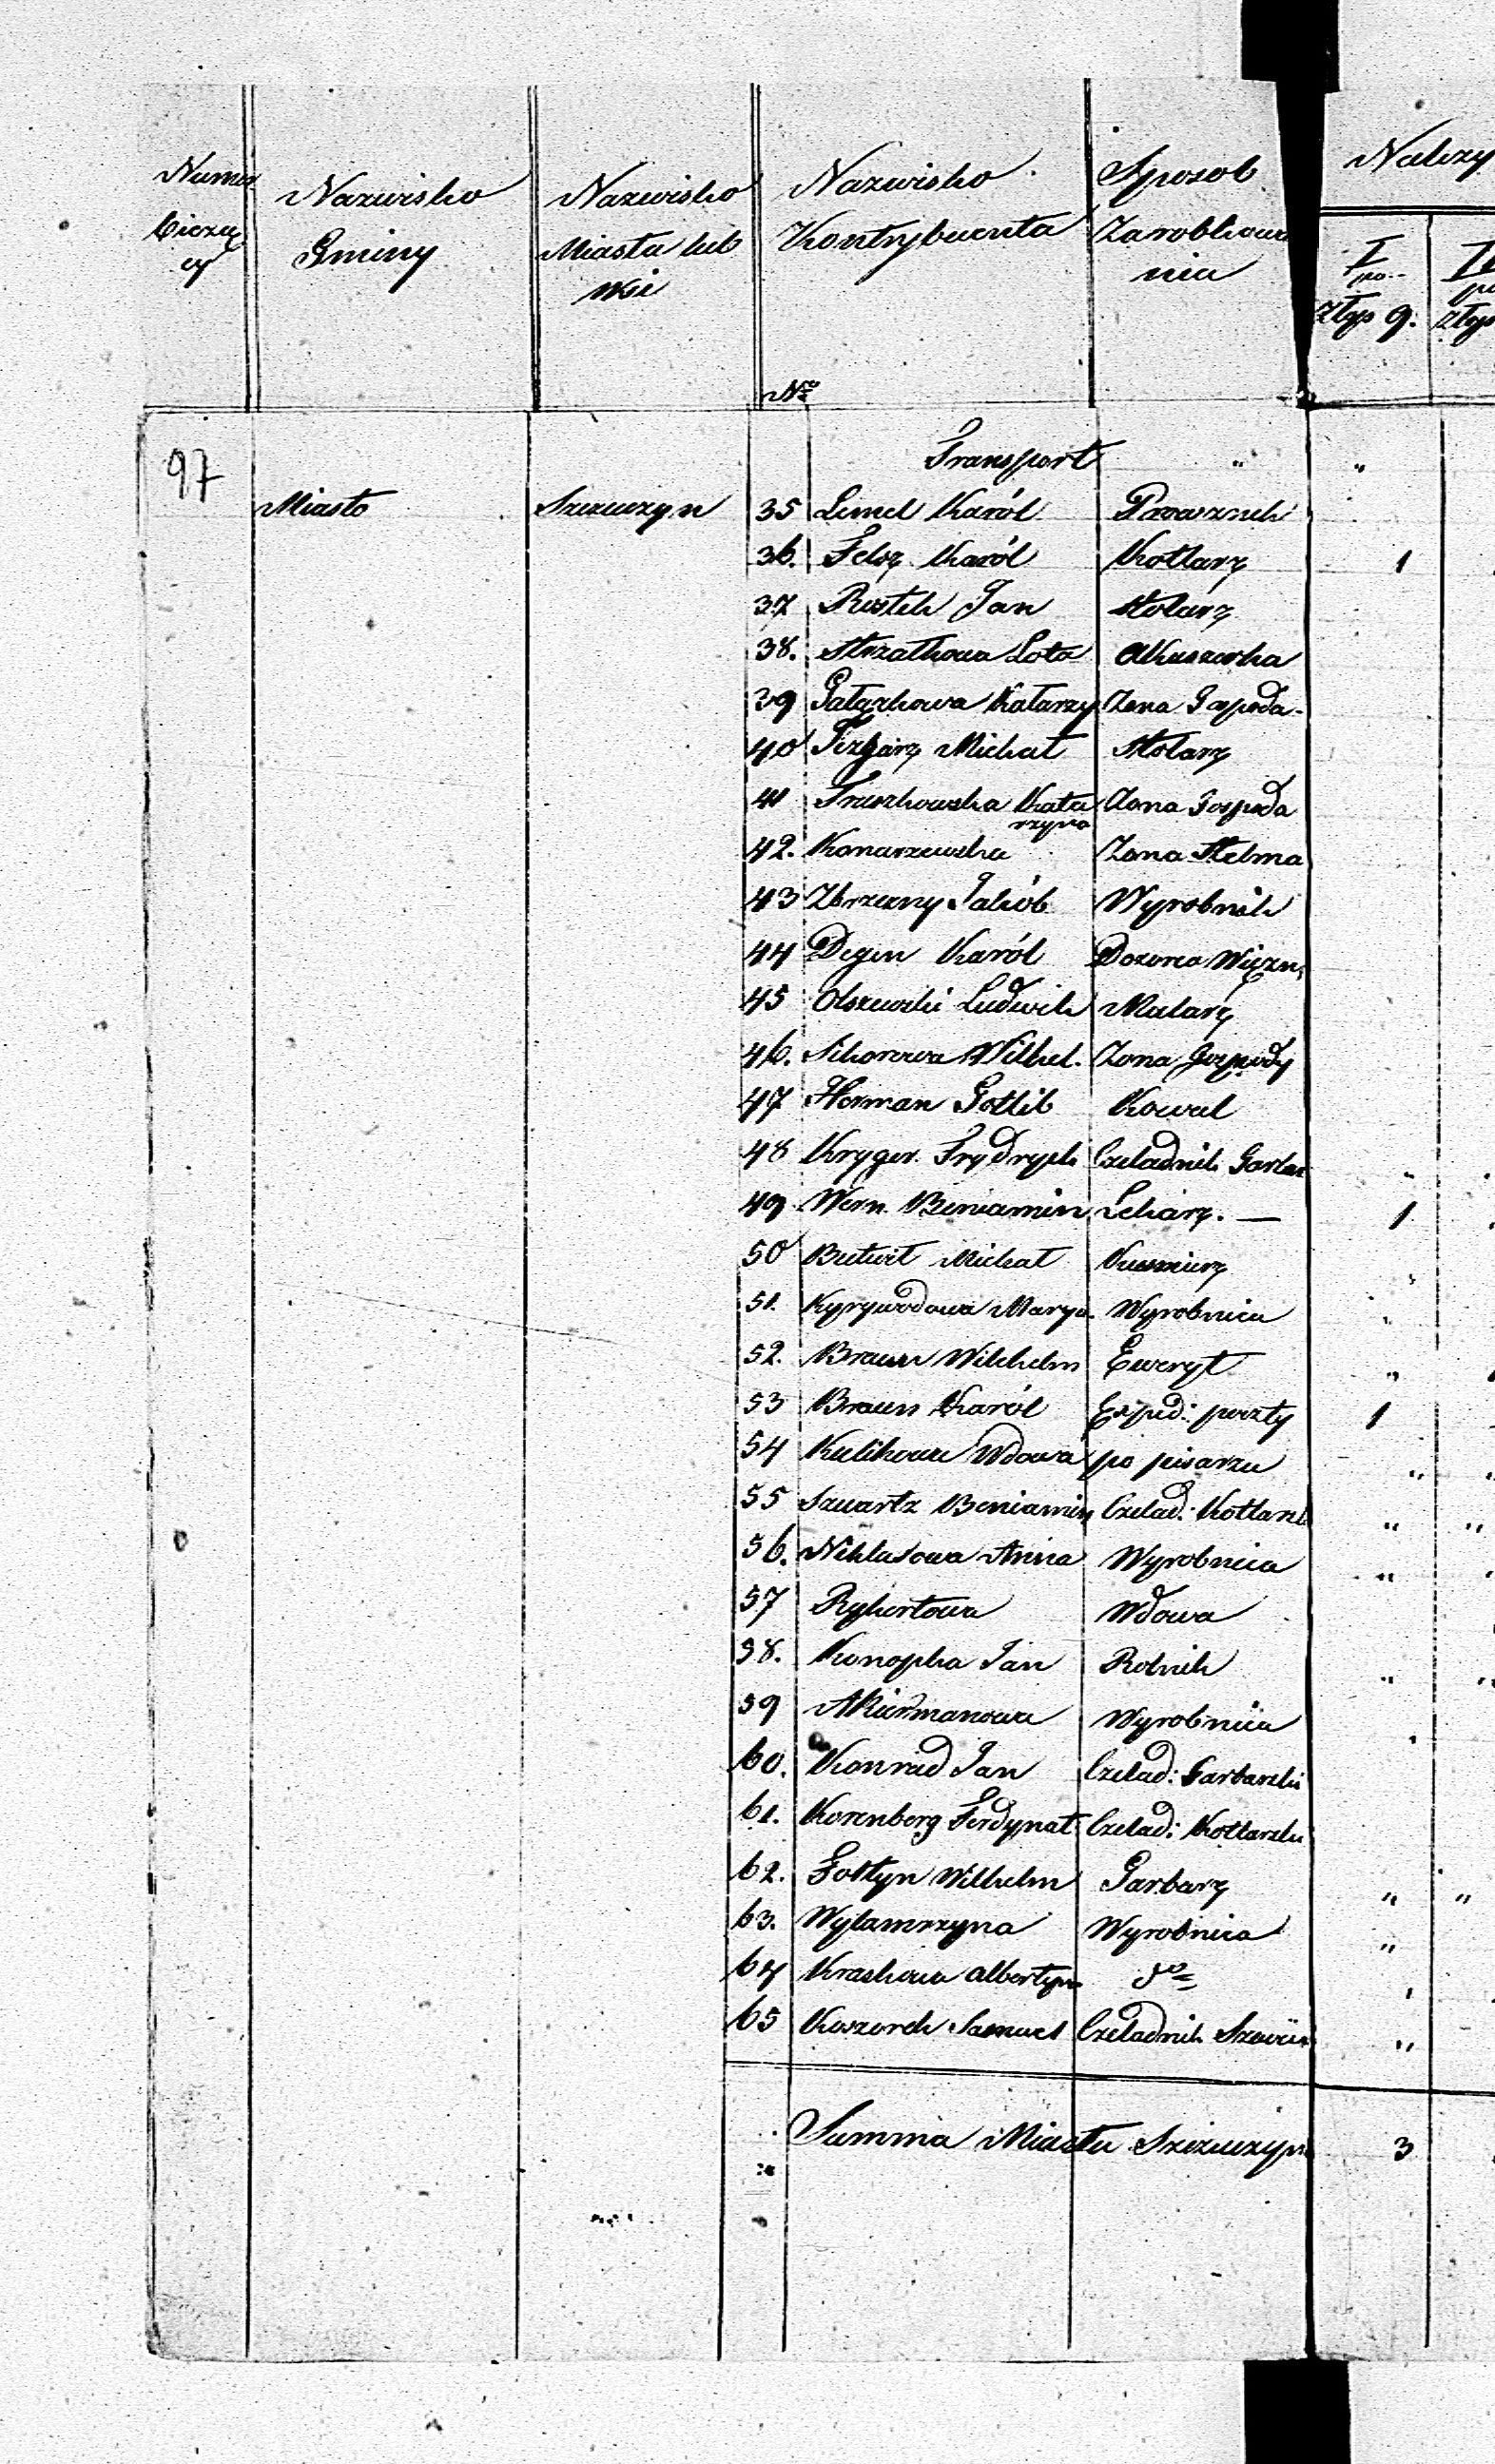 Numer Nazwisko Nazwisko Nazwisko Sposob Należy
bieżą Gminy Miasta lub Kontrybuenta Zarobkowa
cy wsi nia
I po
Złyp g. złyp
Nro
Transport " "
97
Miasto Szczuczyn 35 Lemel Karól Powroznik
36. Felsz Karól Kotlarz 1
37 Rostek Jan Stolarz
38. Strzałkowa Lota Akuszerka
39 Gałązkowa Katarzy Żona Gospoda
40 Michał Stolarz
41 Truszkowska Kata Żona Gospoda
rzyna
42. Konarzewska Żona Stelma
43 Zbrzezny Jakób Wyrobnik
44 Degen Karól Dozorca Więzn.
45 Olszewski Ludwik Malarz
46. Sikorowa Wilhel. Żona Gospody
47 Herman Gotlib Kowal
48 Kryger Frydrych Czeladnik Garbar "
49 Wern Beniamin Lekarz. — 1
50 Butwił Michał Kusmierz
51. Kyrywodowa Marya. Wyrobnica
52. Braun Wilhelm Emeryt "
53 Braun Karól Exped: poczty 1
54 Kulikowa Wdowa po pisarzu " "
55 Szwartz Beniamin Czelad: Kotlars " "
56. Niklasowa Anna Wyrobnica "
57 Rykertowa Wdowa
58. Konopka Jan Rolnik " "
59 Akiermanowa Wyrobnica
60. Konrad Jan Czelad: Garbarski
61. Korenberg Ferdynat Czelad: Kotlarski
62. Foltyn Wilhelm Garbarz " "
63. Wyrobnica "
64 Kraskowa Albertyna do
65 Koszorek Samuel Czeladnik Szewcki "
Summa Miasta Szczuczyn 3